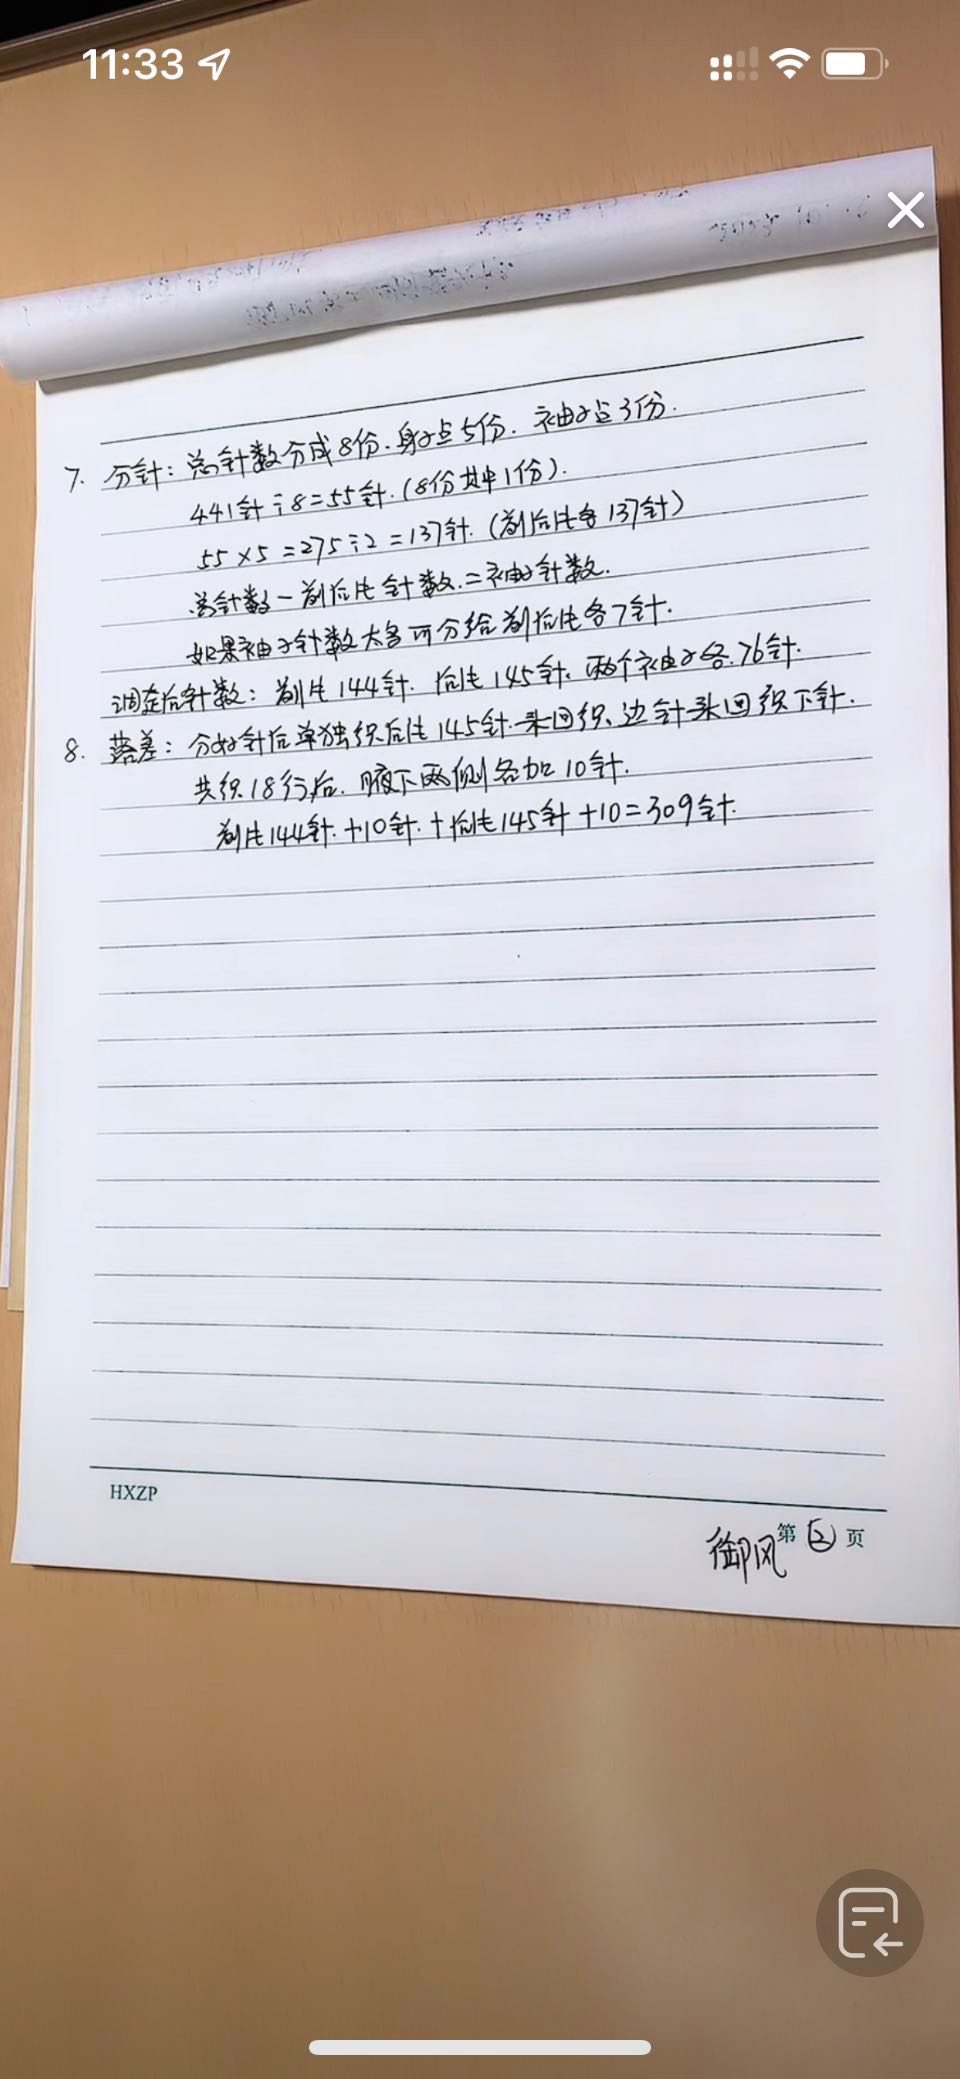 11:33
7. 分针：总针数分成8份.身子占5份.袖子占3份.
441针÷8=55针.(8份其中1份).
55×5=275÷2=137针.(前后片各137针)
总针数-前后片针数.=袖子针数.
如果袖子针数太多可分给前后片各7针.
调整后针数：前片144针.后片145针.两个袖子各.76针.
8. 落差：分好针后单独织后片145针.来回织、边针来回织下针.
共织18行后.腋下两侧各加10针.
前片144针.+10针.+后片145针+10=309针.
HXZP
御风 第 ② 页